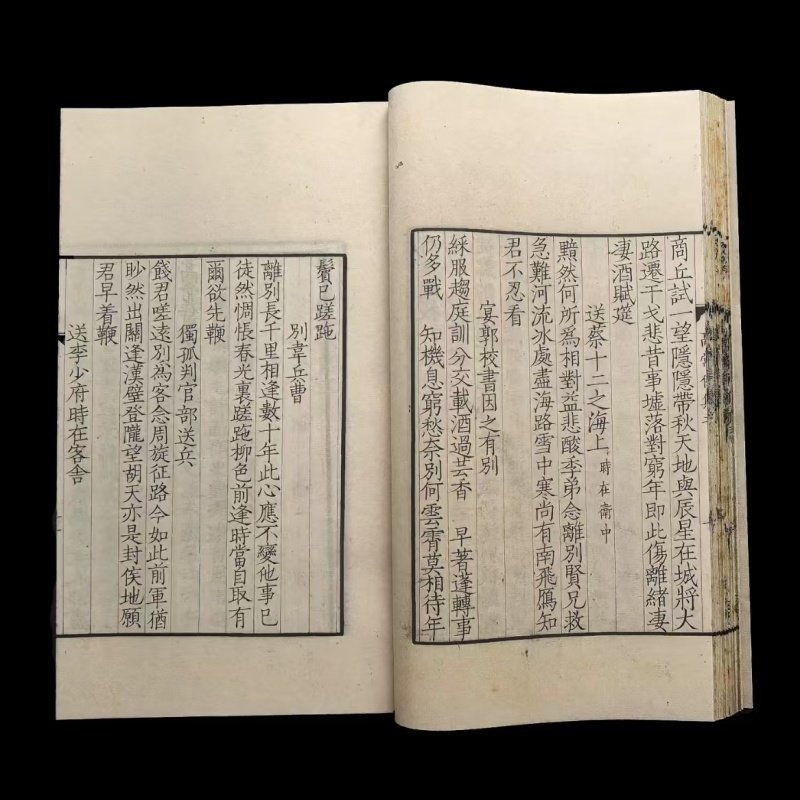 商丘試一望隱隱帶秋天地與辰星在城將大
路遷干戈悲昔事墟落對窮年即此傷離緒淒
淒酒賦筵
送蔡十二之海上時在衛中
黯然何所為相對益悲酸季弟念離別賢兄救
急難河流冰處盡海路雪中寒尚有南飛鴈知
君不忍看
宴郭校書因之有別
綵服趨庭訓分交載酒過芸香 早著蓬轉事
仍多戰 知機息窮愁奈別何雲霄莫相待年
鬢已蹉跎
別韋兵曹
離別長千里相逢數十年此心應不變他事已
徒然惆悵春光裏蹉跎柳色前逢時當自取有
爾欲先鞭
獨孤判官部送兵
餞君嗟遠別為客念周旋征路今如此前軍猶
眇然出關逢漢壁登隴望胡天亦是封侯地願
君早着鞭
送李少府時在客舍